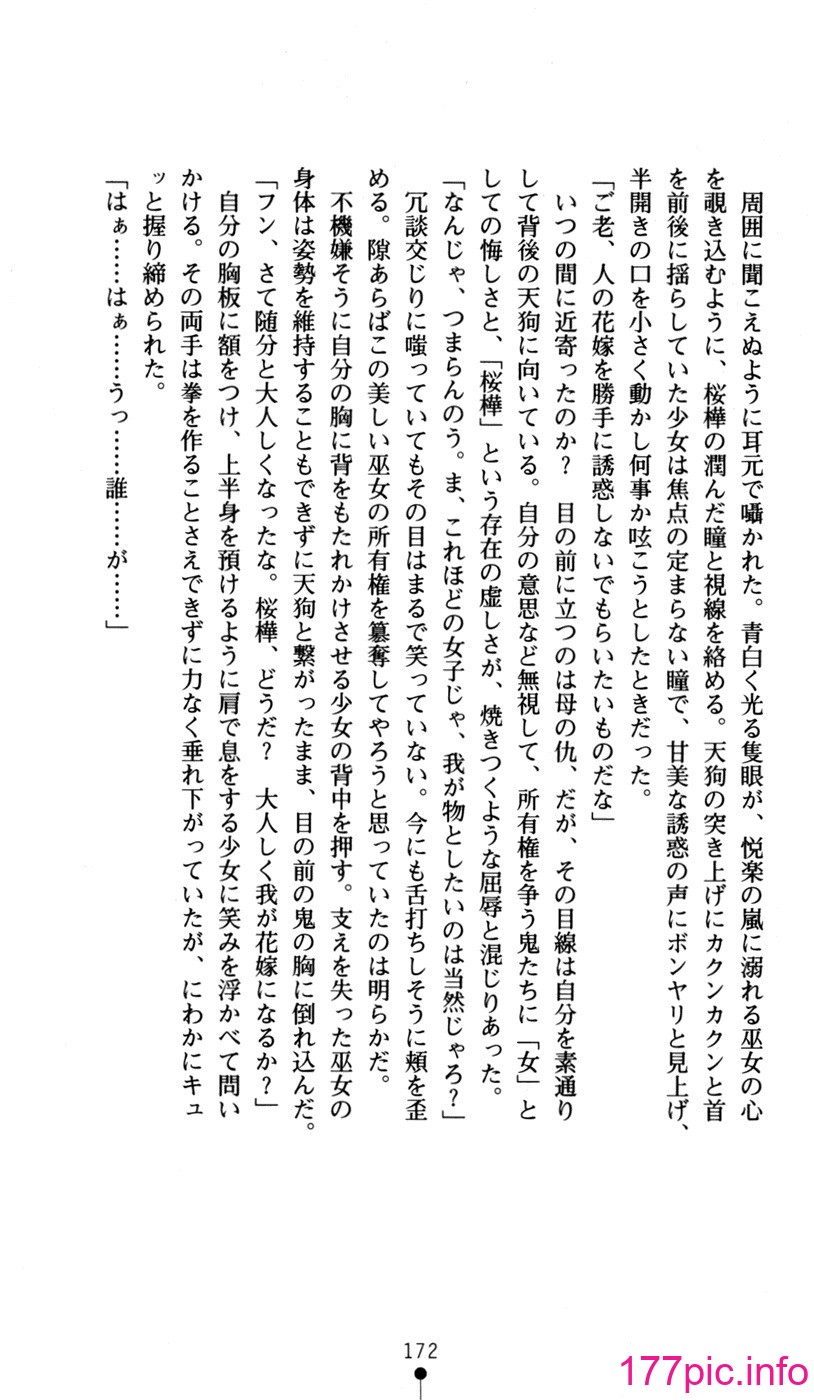 周囲に聞こえぬように耳元で囁かれた。青白く光る隻眼が、悦楽の嵐に溺れる巫女の心
を覗き込むように、桜樺の潤んだ瞳と視線を絡める。天狗の突き上げにカクンカクンと首
を前後に揺らしていた少女は焦点の定まらない瞳で、甘美な誘惑の声にボンヤリと見上げ、
半開きの口を小さく動かし何事か呟こうとしたときだった。
「ご老、人の花嫁を勝手に誘惑しないでもらいたいものだな」
いつの間に近寄ったのか？　目の前に立つのは母の仇、だが、その目線は自分を素通り
して背後の天狗に向いている。自分の意思など無視して、所有権を争う鬼たちに「女」と
しての悔しさと、「桜樺」という存在の虚しさが、焼きつくような屈辱と混じりあった。
「なんじゃ、つまらんのう。ま、これほどの女子じゃ、我が物としたいのは当然じゃろ？」
冗談交じりに嗤っていてもその目はまるで笑っていない。今にも舌打ちしそうに頬を歪
める。隙あらばこの美しい巫女の所有権を簒奪してやろうと思っていたのは明らかだ。
不機嫌そうに自分の胸に背をもたれかけさせる少女の背中を押す。支えを失った巫女の
身体は姿勢を維持することもできずに天狗と繋がったまま、目の前の鬼の胸に倒れ込んだ。
「フン、さて随分と大人しくなったな。桜樺、どうだ？　大人しく我が花嫁になるか？」
自分の胸板に額をつけ、上半身を預けるように肩で息をする少女に笑みを浮かべて問い
かける。その両手は拳を作ることさえできずに力なく垂れ下がっていたが、にわかにキュ
ッと握り締められた。
「はぁ……はぁ……うっ……誰……が……」
172
177pic.info